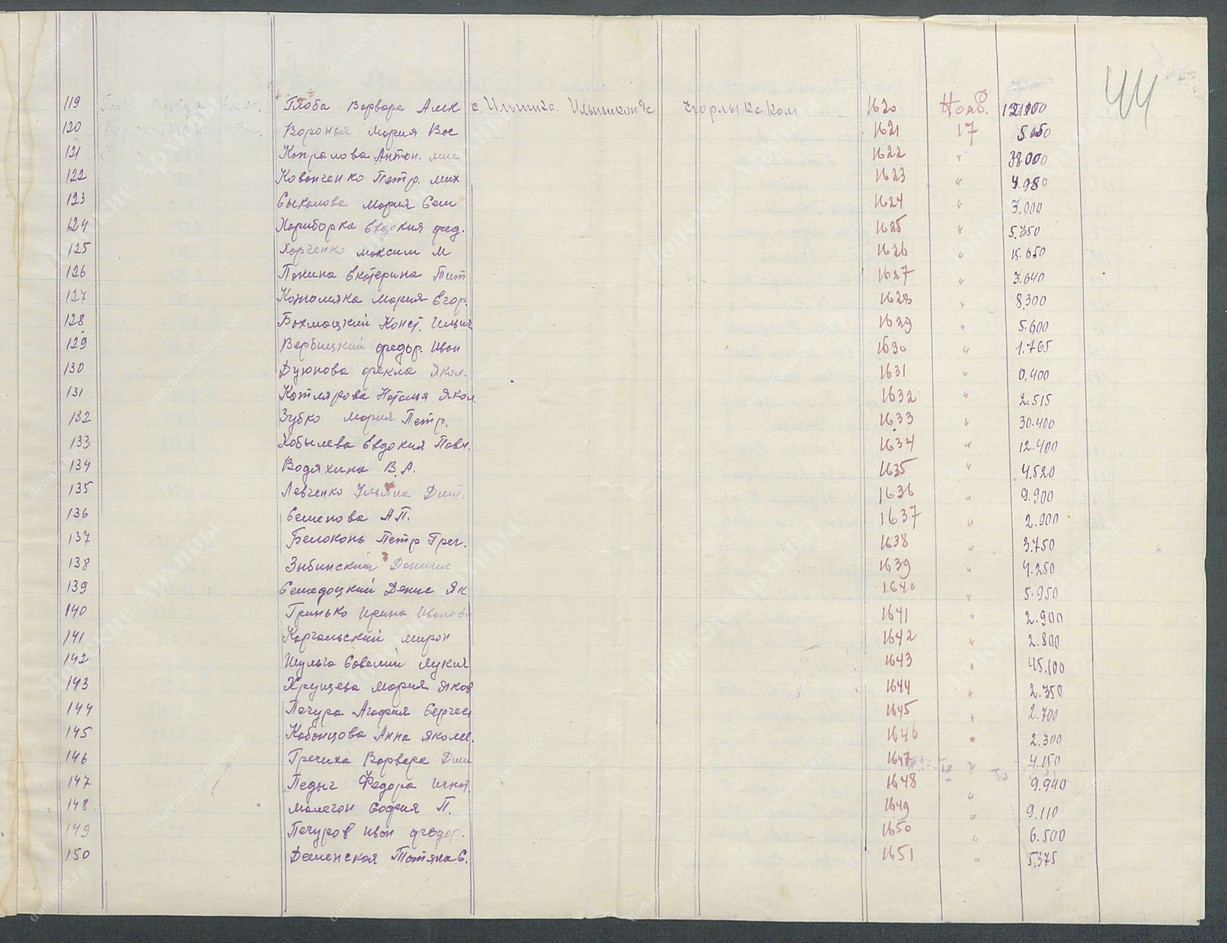 44
119 Глоба Варвара Алек с. Ильинка. 1620 Нояб.
120 Вороная Мария Вас 1621 17
121 Антон. 1622 " 38.000
122 Петр. Мих 1623 " 4.980
123 Мария Сем 1624 " 3.000
124 Евдокия Фед. 1625 " 5.350
125 Харченко Максим М 1626 " 15.650
126 Панина Екатерина Тит 1627 " 3.640
127 Мария Егор. 1628 " 8.300
128 Конст. Ильич 1629 " 5.600
129 Вербицкий Федор. Иван 1630 " 1.765
130 Фекла Яков. 1631 " 0,400
131 Котлярова Наталья Яков 1632 " 2.515
132 Зубко Мария Петр. 1633 " 30.400
133 Кобылева Евдокия Павл. 1634 " 12.400
134 Водяхина В.А. 1635 " 4.520
135 Левченко Ульяна Дмит. 1636 " 9.900
136 Семенова А.П. 1637 " 2.900
137 Белоконь Петр Григ. 1638 " 3.750
138 Зыбинский Даниил 1639 " 4.250
139 Денис Як 1640 " 5.950
140 Гринько Ирина Иванова 1641 " 2.900
141 Каргальский Мирон 1642 " 2.800
142 Шульга Савелий Лукич 1643 " 45.100
143 Хрущева Мария Яков 1644 " 2.350
144 Печура Агафия Сергеев 1645 " 2.700
145 Кабанцова Анна Яковлев. 1646 " 2.300
146 Гречиха Варвара Дми 1647 " 4.150
147 Педыч Федора Игнат. 1648 " 9.940
148 Малегон София П. 1649 " 9.110
149 Печуров Иван Федор. 1650 " 6.500
150 Деменская Татяна С. 1651 " 5.375